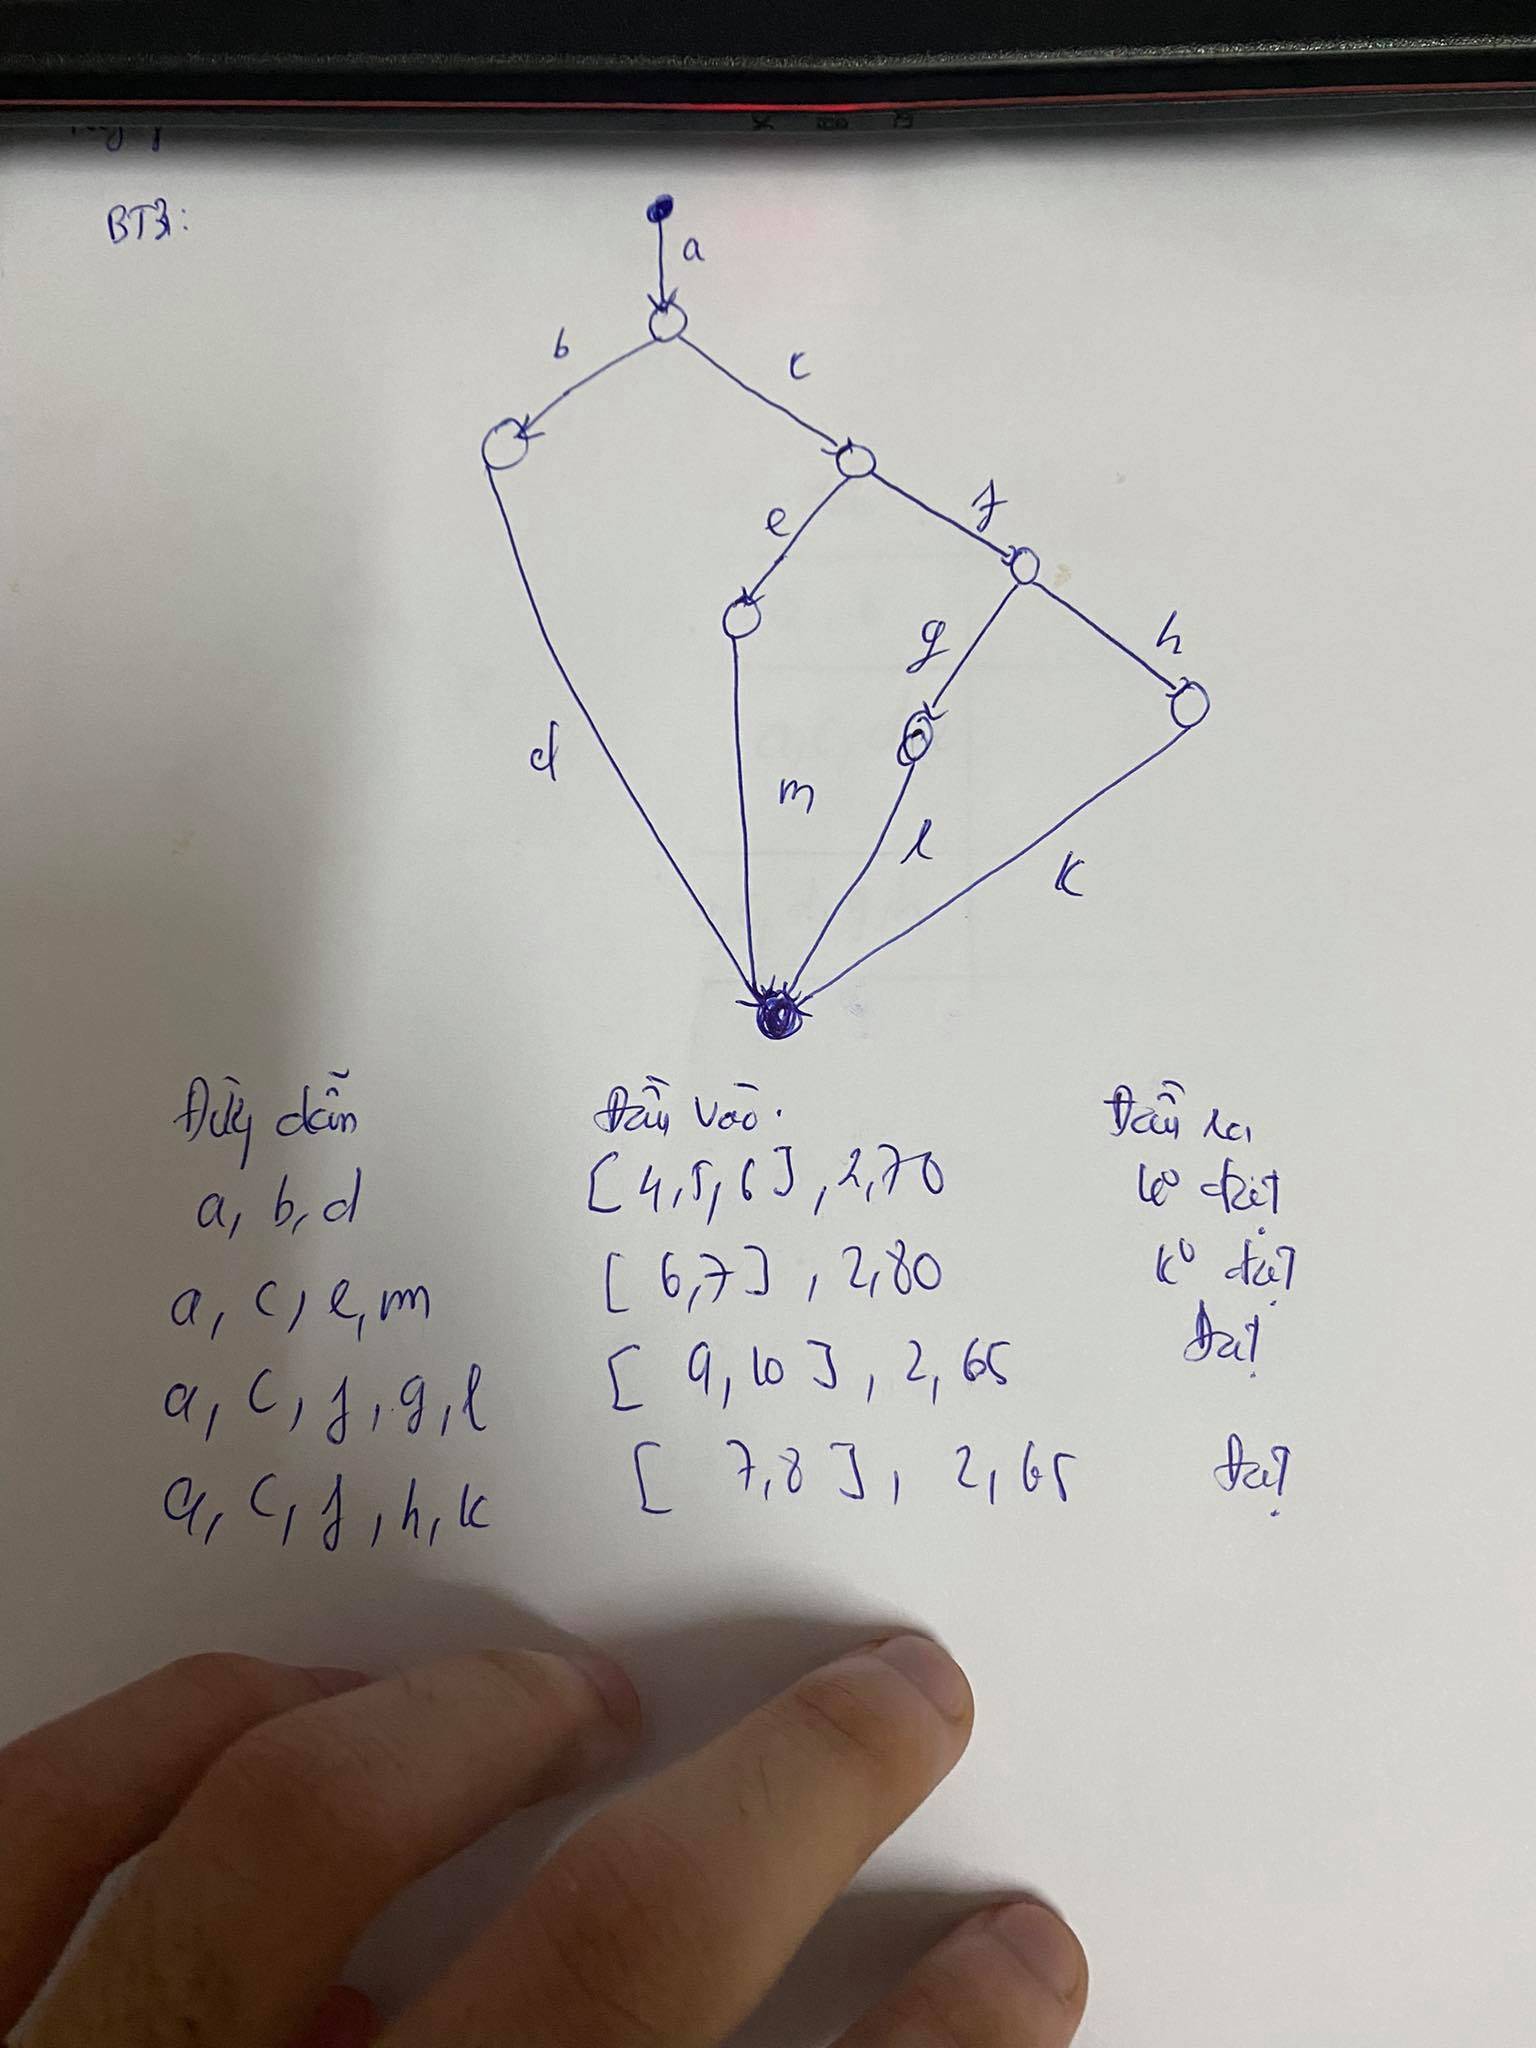 BT3:
a
b
c
e
f
g
h
d
m
l
k
Đường dẫn Đầu vào. Đầu ra
a, b, d [4,5,6], 2,70 K° đạt
a, c, e, m [6,7], 2,80 K° đạt
a, c, f, g, l [9,10], 2,65 Đạt
a, c, f, h, k [7,8], 2,65 Đạt